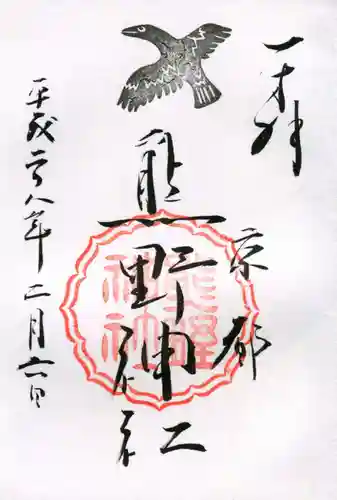 奉拝
京都
熊野神社
平成二八年二月六日
熊野
神社